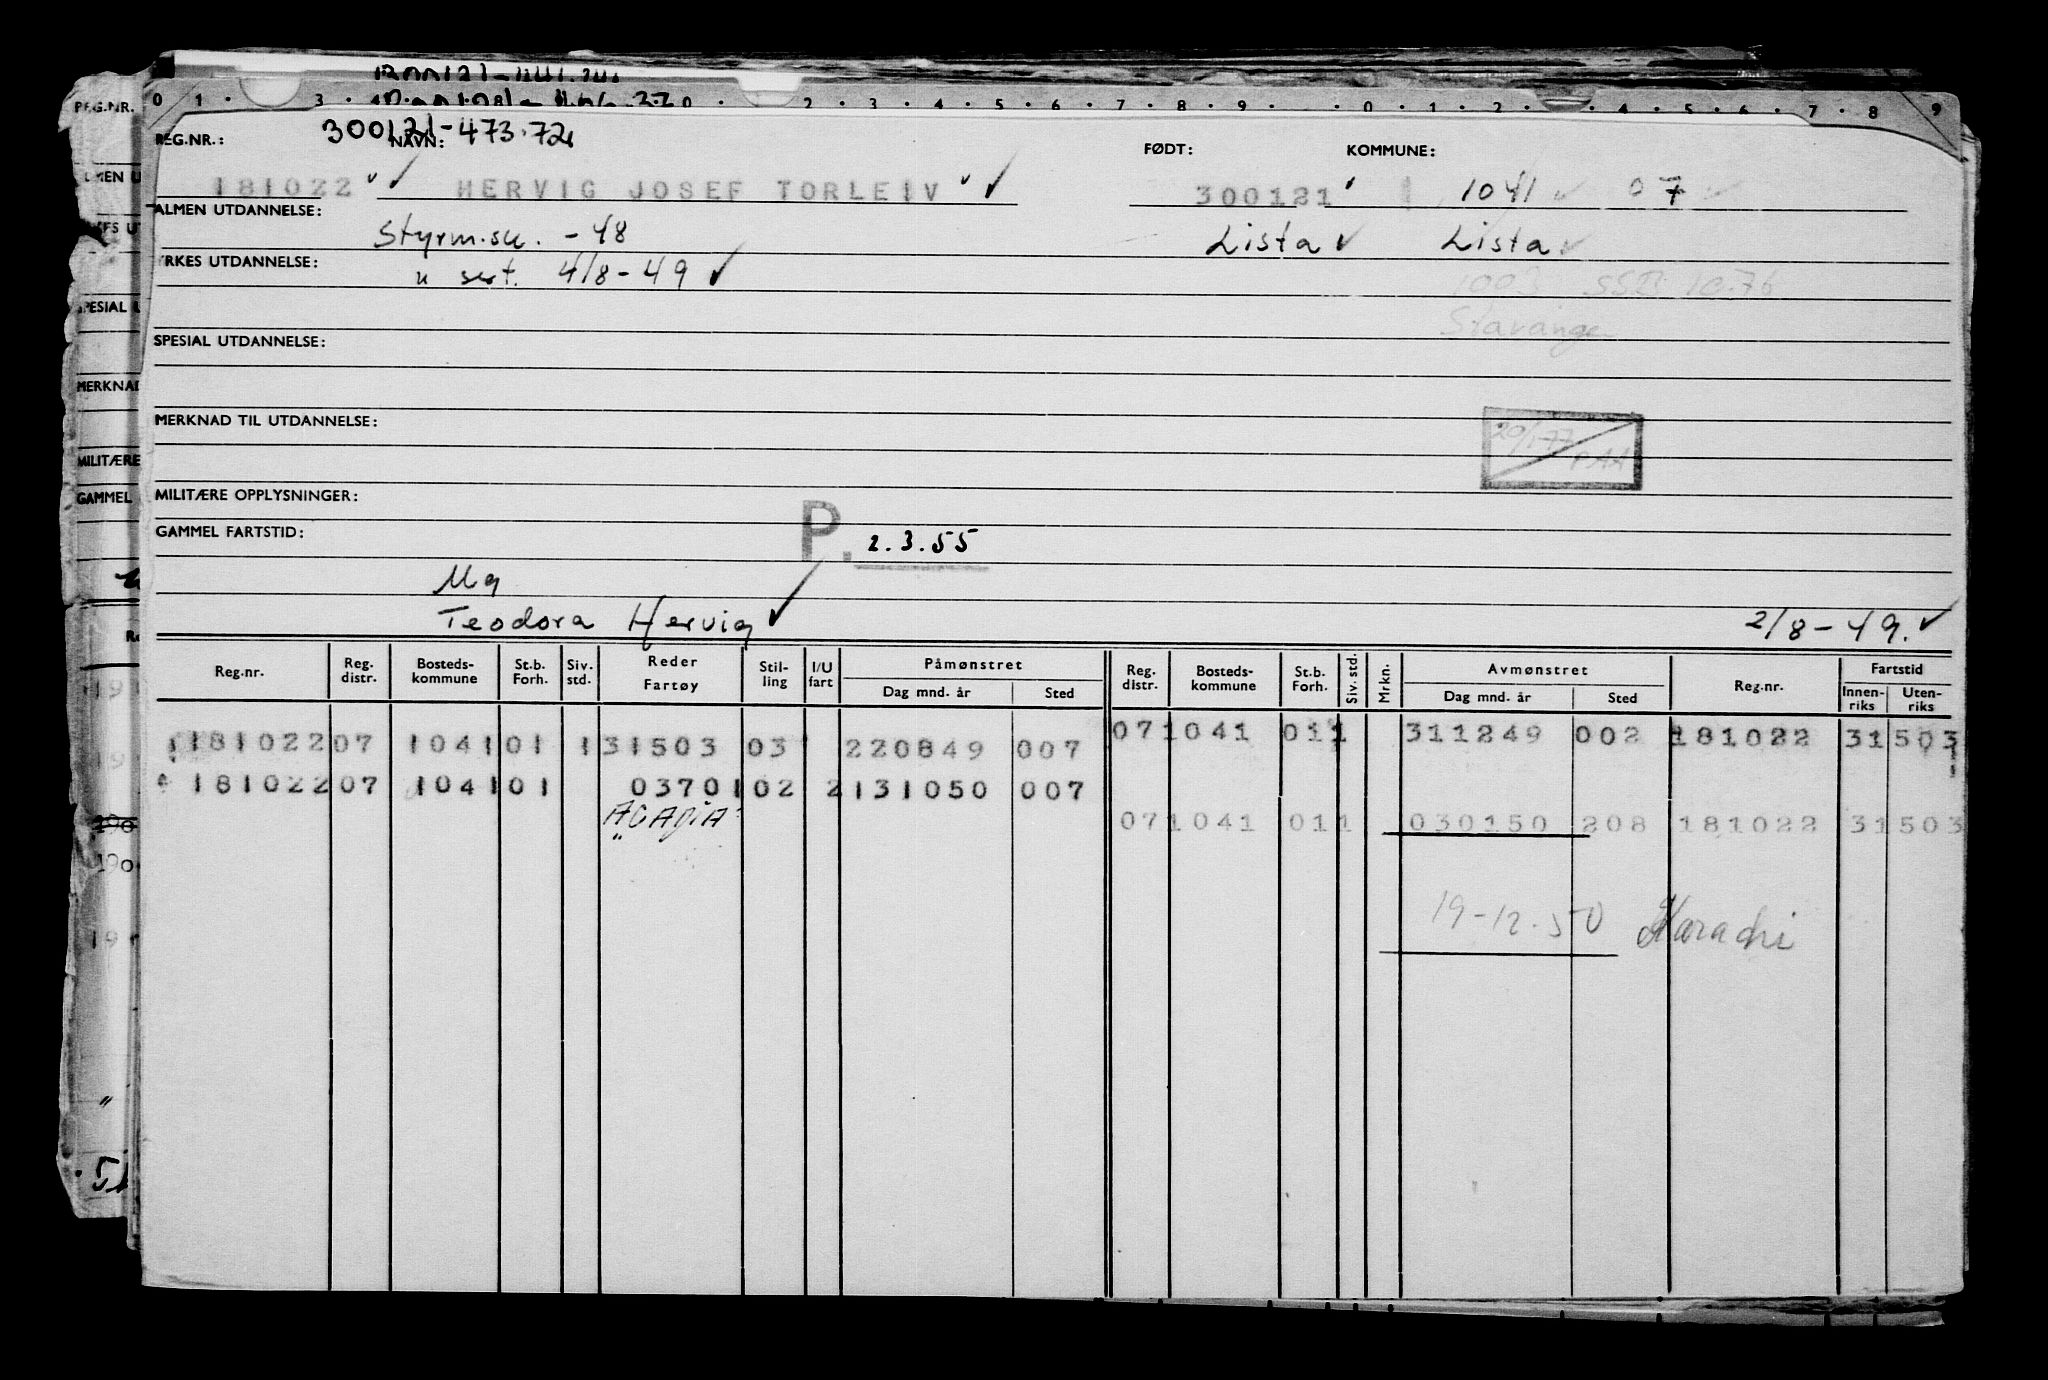 REG.NR.: 300121-473.72 NAVN: FØDT: KOMMUNE:
181022 HERVIG JOSEF TORLEIV 300121 1041 07
ALMEN UTDANNELSE: Styrm.sk. -48 Lista Lista
YRKES UTDANNELSE: u sert. 4/8-49
1003 10.76
Stavanger
SPESIAL UTDANNELSE:
MERKNAD TIL UTDANNELSE:
20/1-77
PAA
MILITÆRE OPPLYSNINGER:
GAMMEL FARTSTID: P. 2.3.55
Mg
Teodora Hervig 2/8-49.
Reg.nr. Reg. distr. Bosteds-kommune St.b. Forh. Siv. std. Reder Fartøy Stil-ling I/U fart Påmønstret Dag mnd. år Sted Reg. distr. Bosteds-kommune St.b. Forh. Siv. std. Mrkn. Avmønstret Dag mnd. år Sted Reg.nr. Fartstid Innen-riks Uten-riks
181022 07 1041 01 1 31503 03 220849 007 07 1041 01 1 311249 002 181022 31503
181022 07 1041 01 03701 02 2 131050 007
ACADIA 07 1041 01 1 030150 208 181022 31503
19-12.50 Karachi